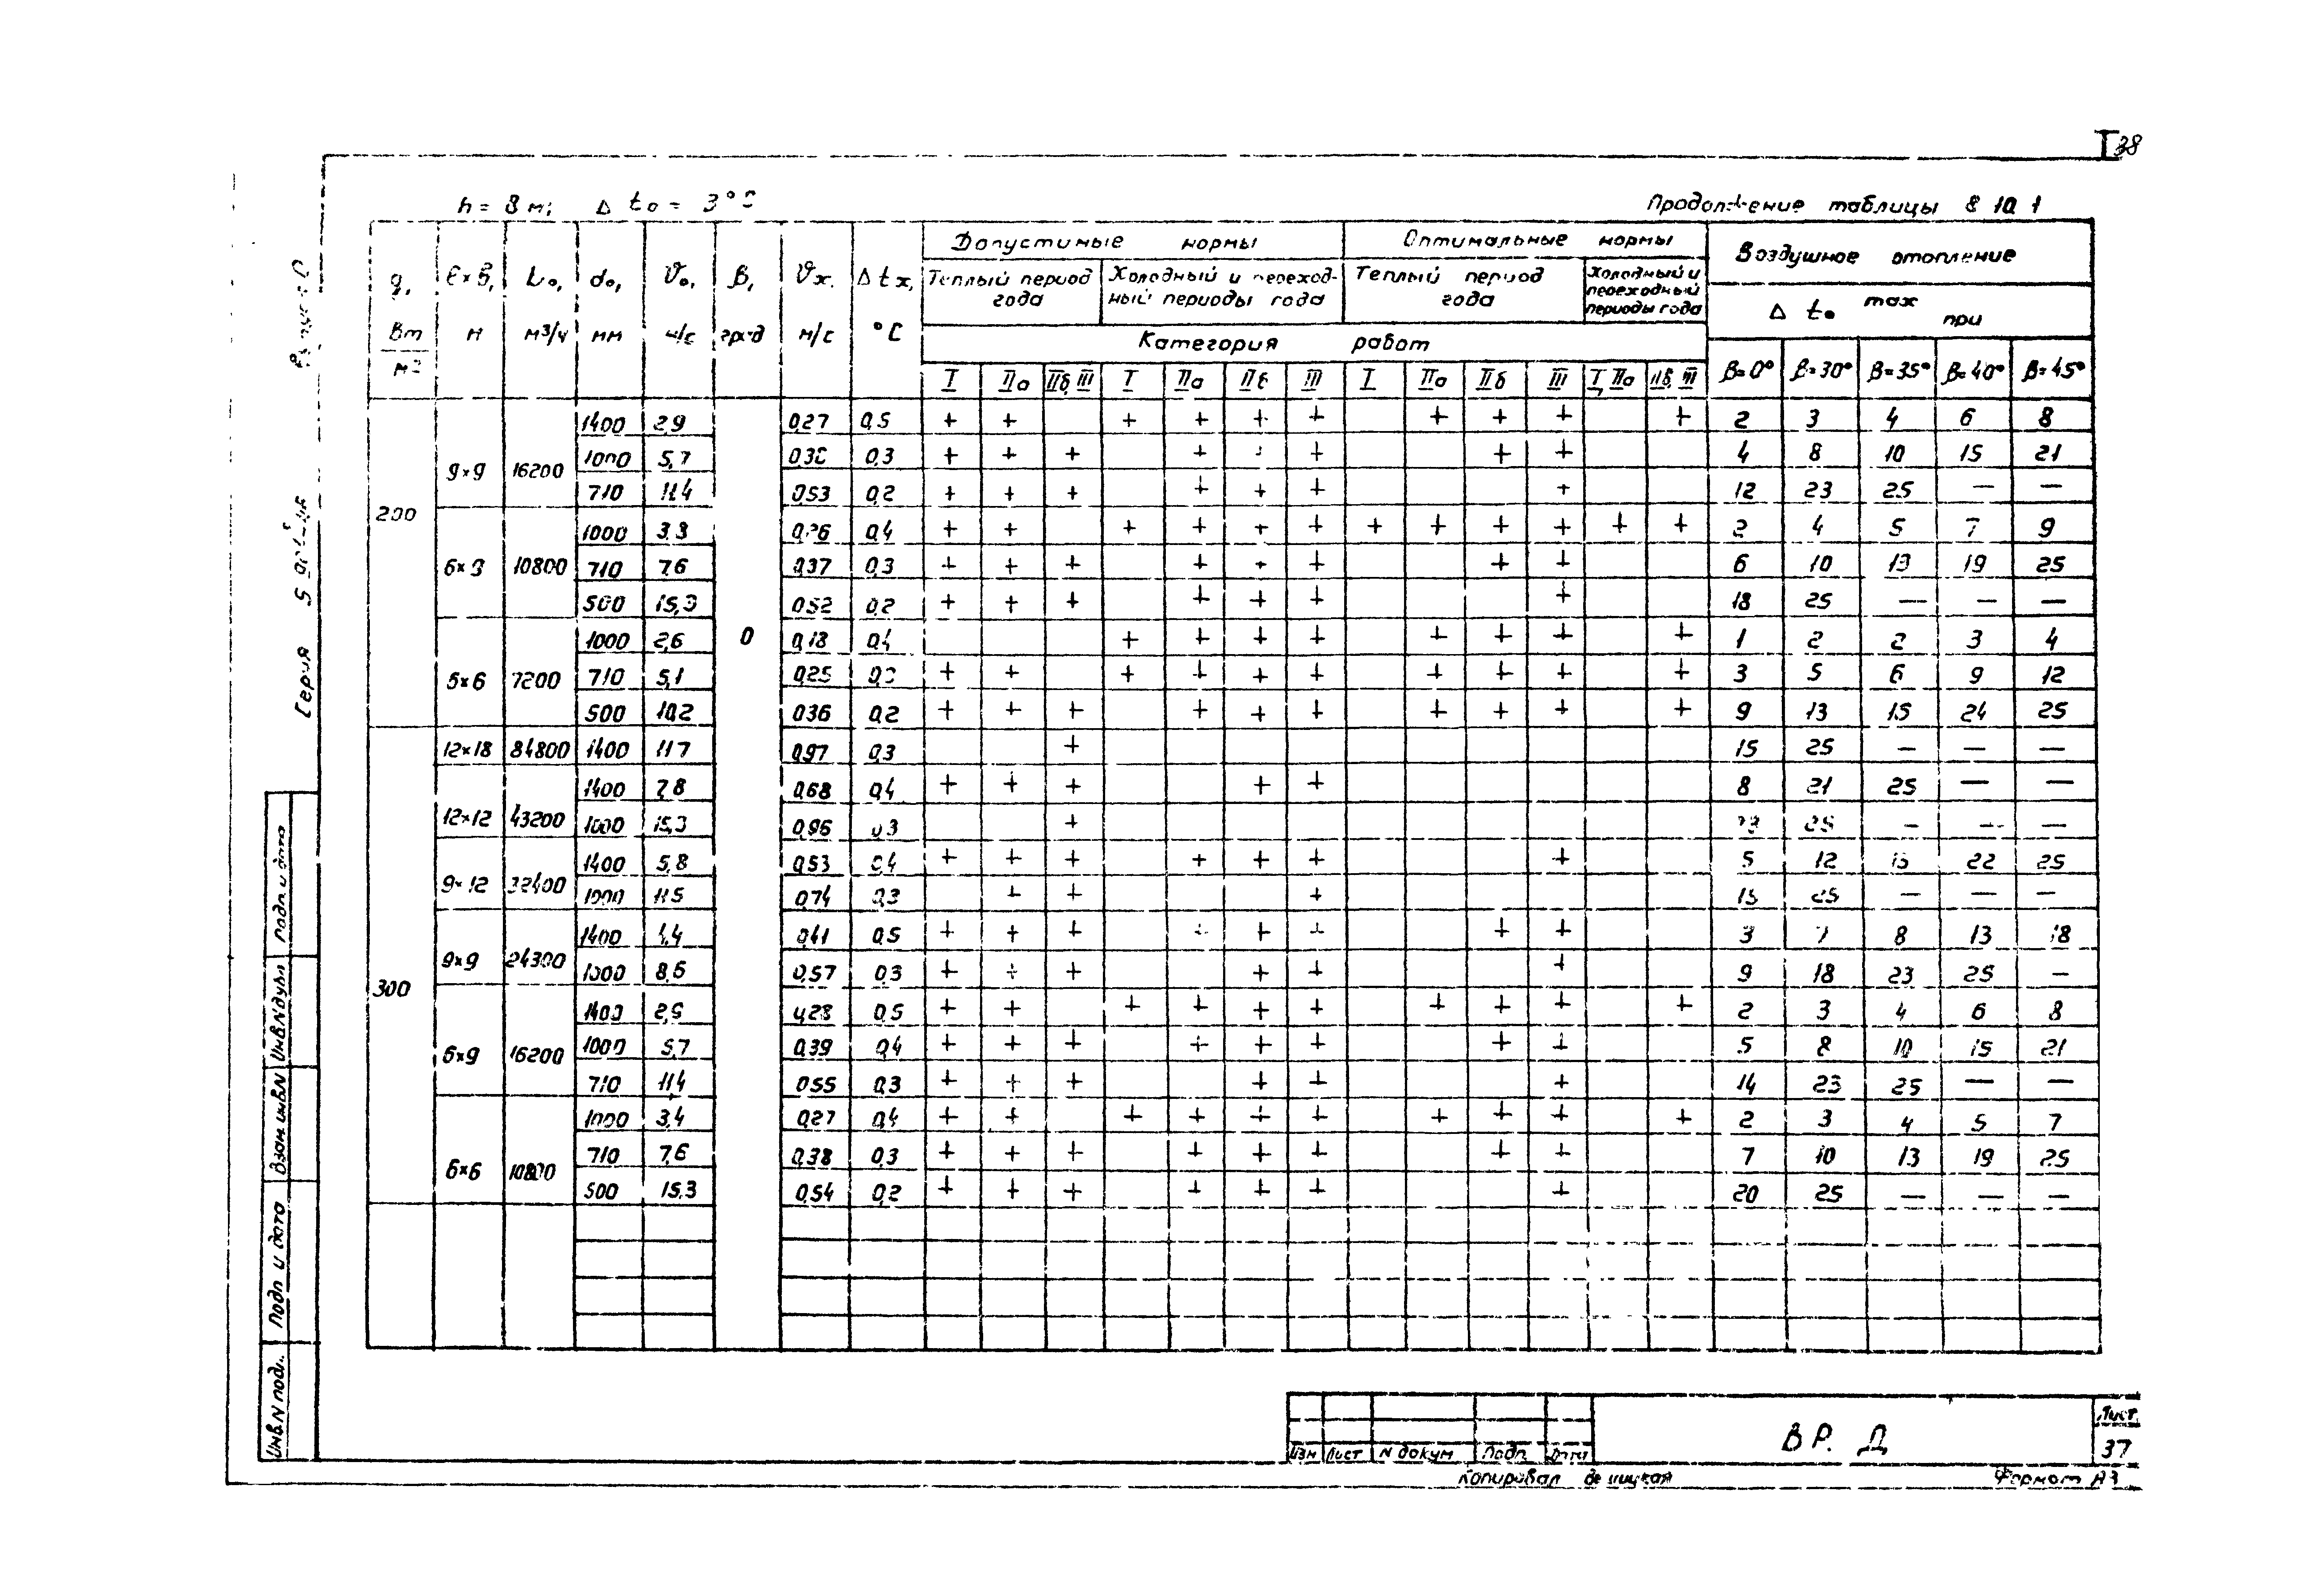 I 38
h = 8 м; Δ to = 3°C
Продолжение таблицы 8 10 1
q, Вт/м² ℓ×B, м Lo, м³/ч do, мм υo, м/с β, град υx, м/с Δtx, °C
Допустимые нормы Оптимальные нормы Воздушное отопление
Теплый период года Холодный и переходный периоды года Теплый период года Холодный и переходный периоды года Δ to max при
Категория работ
I IIа IIб, III I IIа IIб III I IIа IIб III I, IIа IIб, III β=0° β=30° β=35° β=40° β=45°
200 9×9 16200 1400 2,9 0 0,27 0,5 + + + + + + + + + + 2 3 4 6 8
1000 5,7 0,3 + + + + + + + + 4 8 10 15 21
710 11,4 0,53 0,2 + + + + + + + 12 23 25 — —
10800 1000 3,3 0,4 + + + + + + + + + + + + 2 4 5 7 9
710 7,6 0,37 0,3 + + + + + + + + 6 10 13 19 25
500 15,3 0,52 0,2 + + + + + + + 18 25 — — —
7200 1000 2,6 0,18 0,4 + + + + + + + + 1 2 2 3 4
710 5,1 0,25 + + + + + + + + + + 3 5 6 9 12
500 10,2 0,36 0,2 + + + + + + + + + + 9 13 15 24 25
300 12×18 84800 1400 11,7 0,97 0,3 + 15 25 — — —
12×12 43200 1400 7,8 0,68 0,4 + + + + + 8 21 25 — —
1000 15,3 0,96 0,3 + 25 — — —
9×12 32400 1400 5,8 0,53 0,4 + + + + + + + 5 12 22 25
1000 11,5 0,74 0,3 + + + 15 25 — — —
9×9 24300 1400 4,4 0,41 0,5 + + + + + + + + 3 7 8 13 18
1000 8,6 0,57 0,3 + + + + + + 9 18 23 25 —
6×9 16200 1400 0,28 0,5 + + + + + + + + + + 2 3 4 6 8
1000 5,7 0,39 0,4 + + + + + + + + 5 8 10 15 21
710 11,4 0,55 0,3 + + + + + + 14 23 25 — —
6×6 10800 1000 3,4 0,27 0,4 + + + + + + + + + + 2 3 4 5 7
710 7,6 0,38 0,3 + + + + + + + + 7 10 13 19 25
500 15,3 0,54 0,2 + + + + + + + 20 25 — — —
Серия 5
Инв.N подл. Подп и дата Взам инв.N Инв.N дубл Подп и дата
Изм Лист N докум Подп Дата
ВР. Д
Лист
37
Копировал
Формат А3